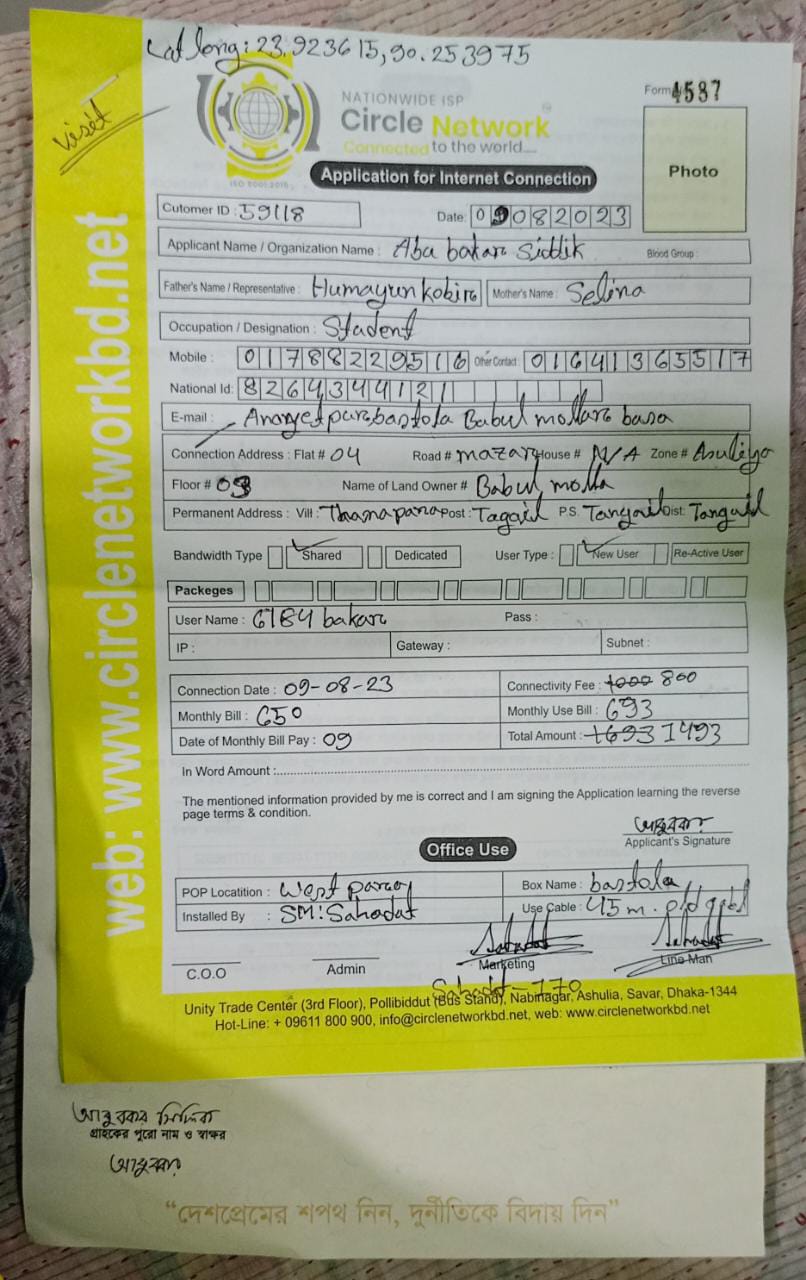 Lat long: 23.923615, 90.253975
visit
NATIONWIDE ISP
Form 4587
Circle Network
Connected to the world....
ISO 9001:2015
Application for Internet Connection
Photo
web: www.circlenetworkbd.net
Cutomer ID : 59118 Date: 09082023
Applicant Name / Organization Name : Abu bakar Siddik Blood Group :
Father's Name / Representative : Humayun kobir Mother's Name : Selina
Occupation / Designation : Student
Mobile : 01788229516 Other Contact : 01641365517
National Id: 8264344121
E-mail : bastola Babul mollar basa
Connection Address : Flat # 04 Road # mazar House # N/A Zone # Asuliya
Floor # 03 Name of Land Owner # Babul molla
Permanent Address : Vill : Thanapara Post : Tagail P.S. Tangail Dist: Tangail
Bandwidth Type Shared Dedicated User Type : New User Re-Active User
Packeges
User Name : 6184 bakar Pass :
IP : Gateway : Subnet :
Connection Date : 09-08-23 Connectivity Fee : 1000 800
Monthly Bill : 650 Monthly Use Bill : 693
Date of Monthly Bill Pay : 09 Total Amount : 1693 1493
In Word Amount :
The mentioned information provided by me is correct and I am signing the Application learning the reverse
page terms & condition.
আবুবকর
Applicant's Signature
Office Use
POP Locatition : West Box Name : bastola
Installed By : SM: Sahadat Use Cable : 45 m. old
Sahadat Sahadat
C.O.O Admin Marketing Line Man
Sahadat - 170
Unity Trade Center (3rd Floor), Pollibiddut (Bus Stand), Nabinagar, Ashulia, Savar, Dhaka-1344
Hot-Line: + 09611 800 900, info@circlenetworkbd.net, web: www.circlenetworkbd.net
আবুবকর সিদ্দিক
গ্রাহকের পুরো নাম ও স্বাক্ষর
আবুবকর
“দেশপ্রেমের শপথ নিন, দুর্নীতিকে বিদায় দিন”